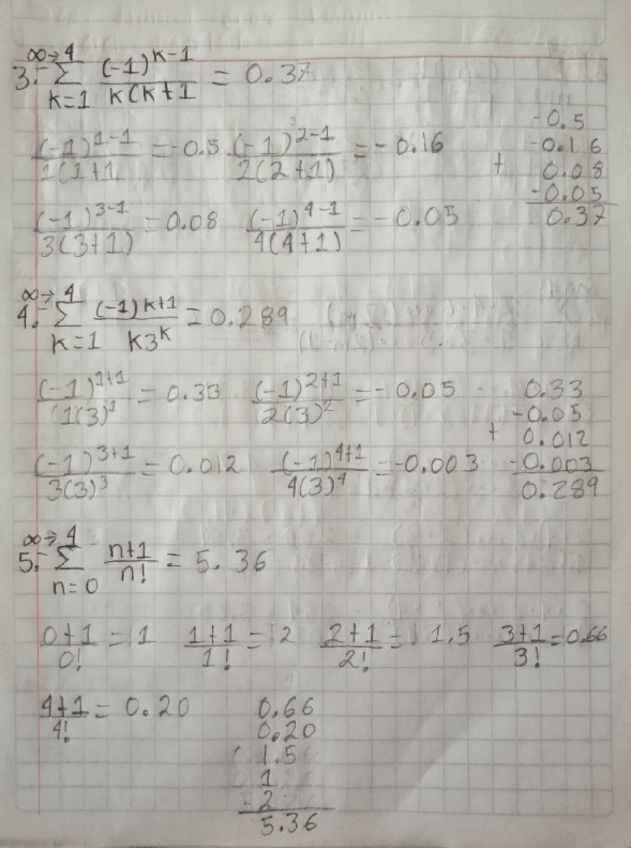 ∞→4
3.- Σ (-1)^k-1 / k(k+1 = 0.37
k=1
(-1)^1-1 / 1(1+1 = -0.5 (-1)^2-1 / 2(2+1) = -0.16
(-1)^3-1 / 3(3+1) = 0.08 (-1)^4-1 / 4(4+1) = -0.05
-0.5
-0.16
+ 0.08
-0.05
0.37
∞→4
4.- Σ (-1)^k+1 / k3^k = 0.289
k=1
(-1)^1+1 / (1(3)^1 = 0.33 (-1)^2+1 / 2(3)^2 = -0.05
(-1)^3+1 / 3(3)^3 = 0.012 (-1)^4+1 / 4(3)^4 = -0.003
0.33
-0.05
+ 0.012
-0.003
0.289
∞→4
5.- Σ n+1 / n! = 5.36
n=0
0+1 / 0! = 1 1+1 / 1! = 2 2+1 / 2! = 1.5 3+1 / 3! = 0.66
4+1 / 4! = 0.20
0.66
0.20
1.5
1
2
5.36